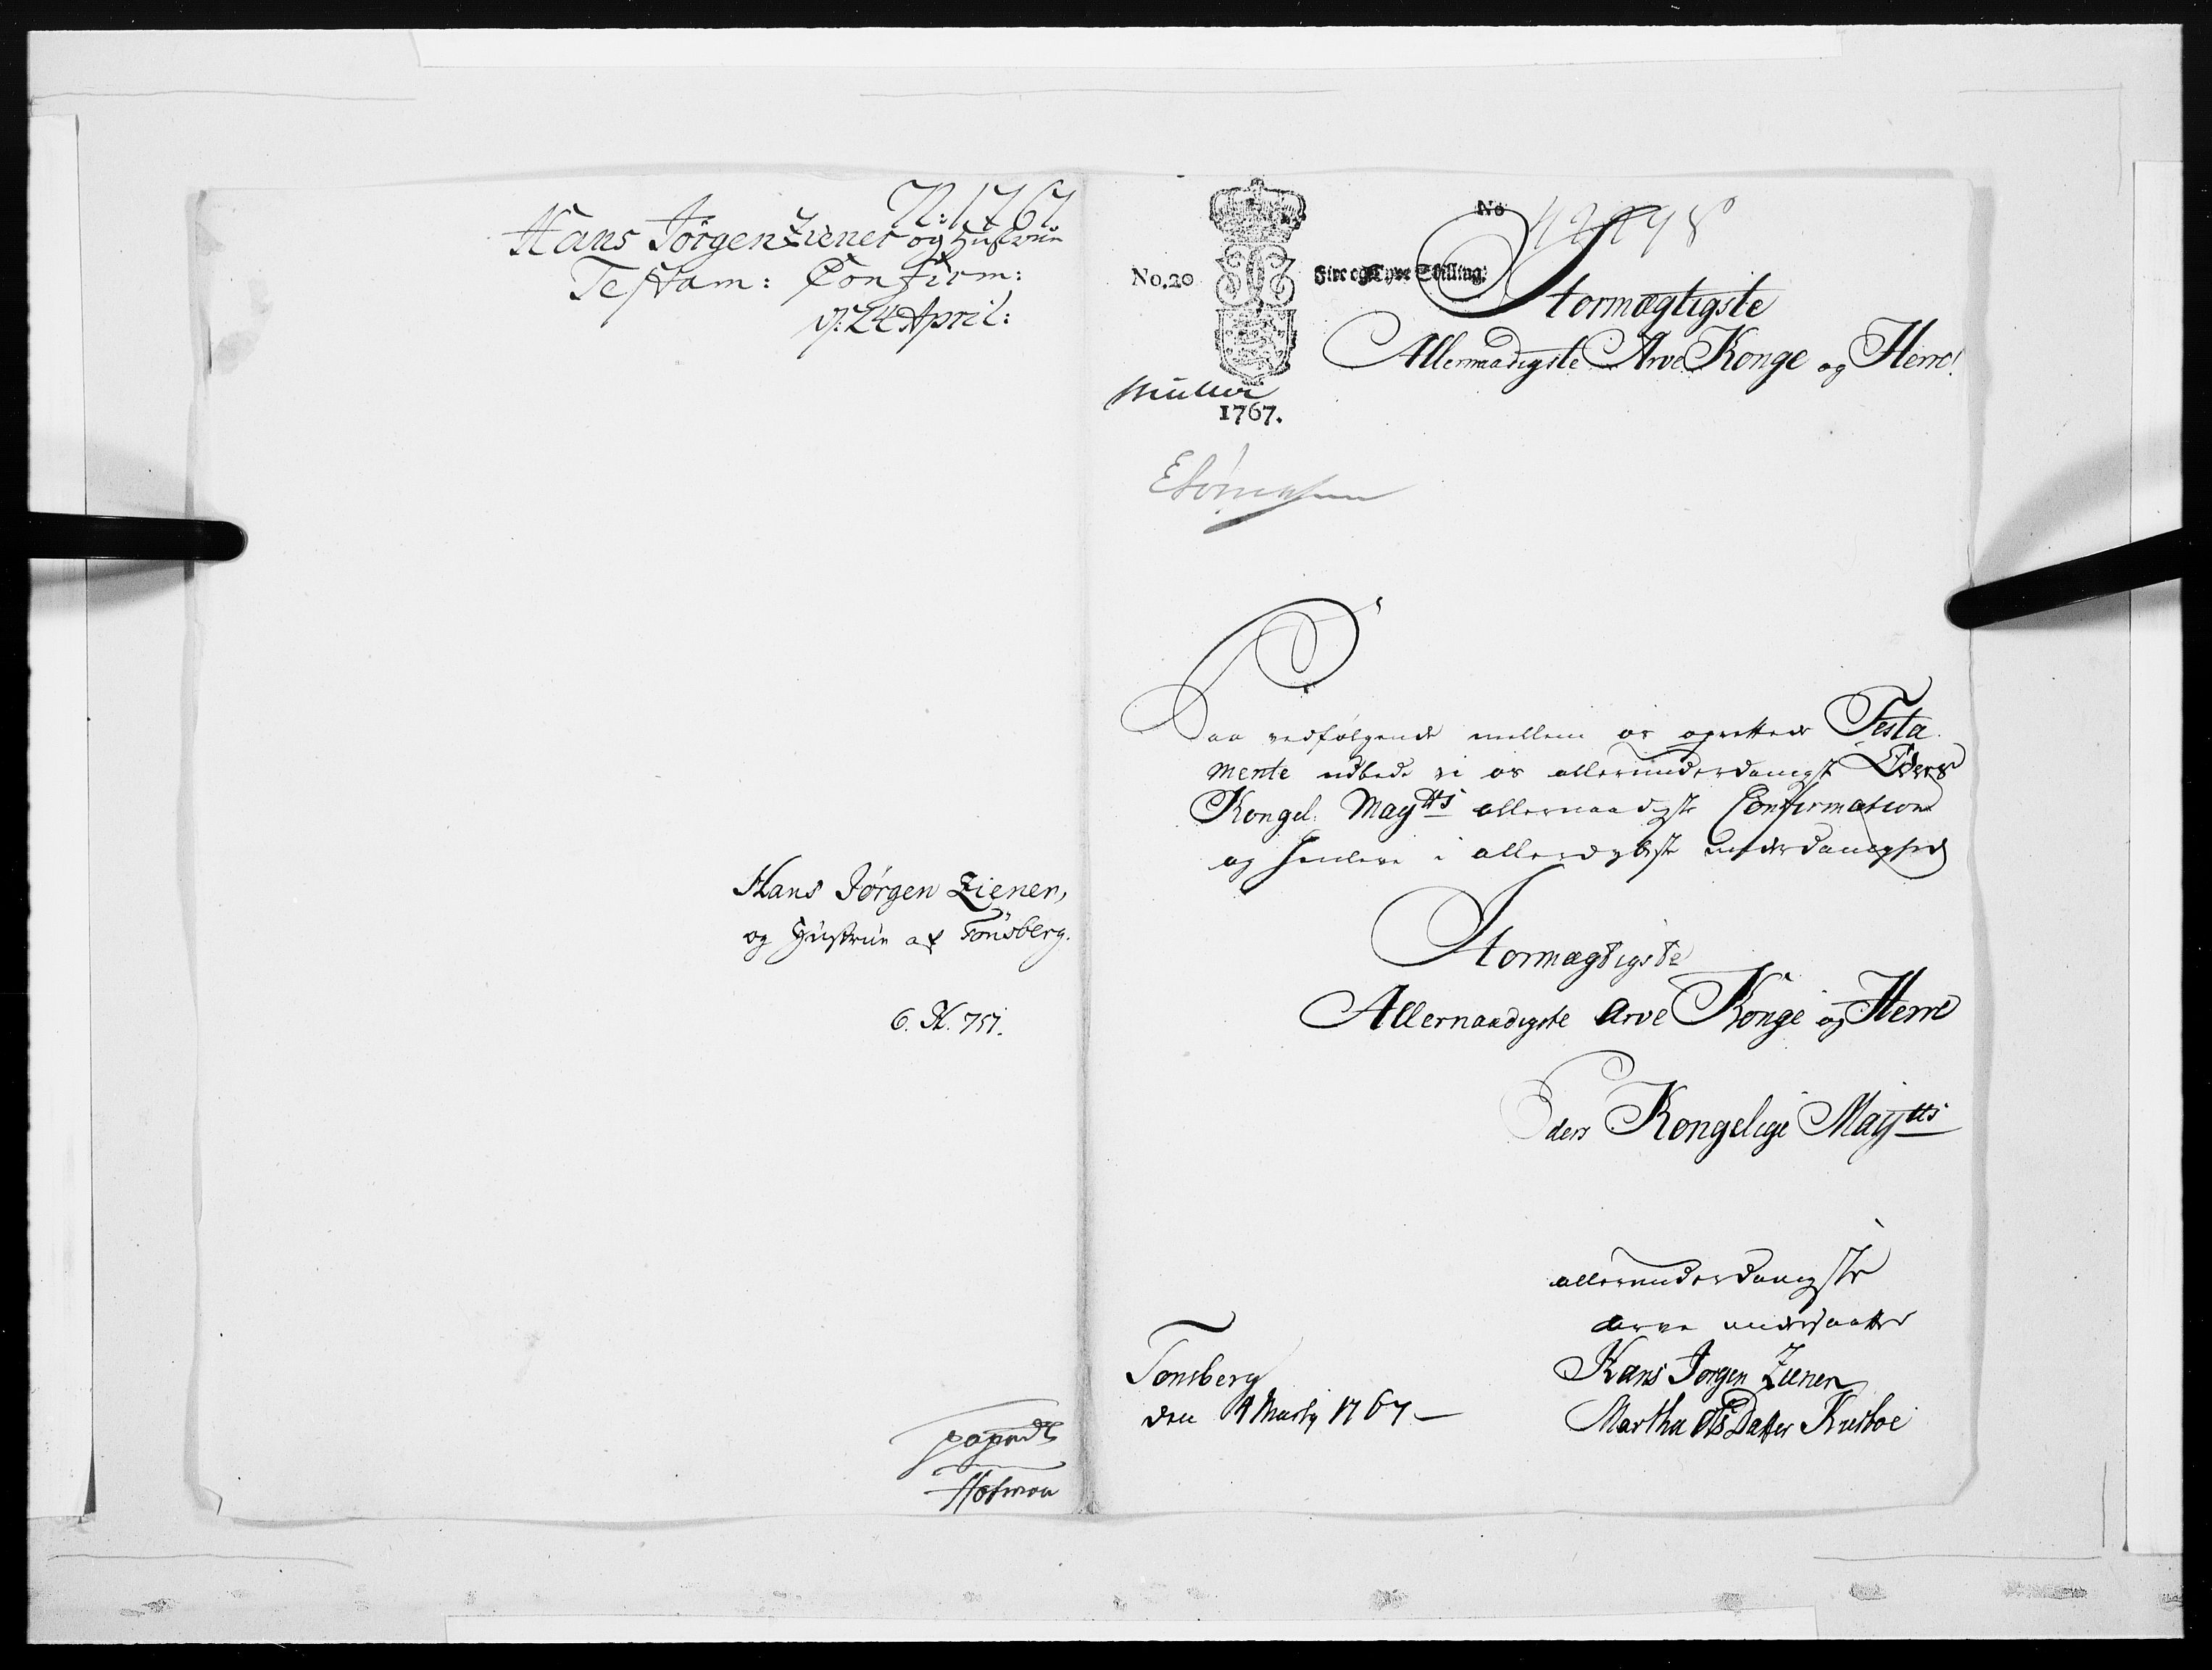 N:1767
Hans Jörgen Ziener og Hustrue
Testam: Confirm:
d: 24 April:
Hans Jörgen Ziener,
og Hustrue af Tönsberg.
6. N. 751.
Hofman
No. 20
No
Fire og Tyve Skilling.
Müller
1767.
Stormægtigste
Allernaadigste Arve Konge og Herre!
Paa vedfølgende mellem os oprettede Testa
mente udbede vi os allerunderdanigst Eders
Kongel: Mayts allernaadigste Confirmation
og henleve i allerdybeste underdanighed
Stormægtigste
Allernaadigste Arve Konge og Herre
Eders Kongelige Mayts
allerunderdanigste
arve undersaatter
Tonsberg
den 4 Marty 1767
Hans Jorgen Ziener
Martha Datter